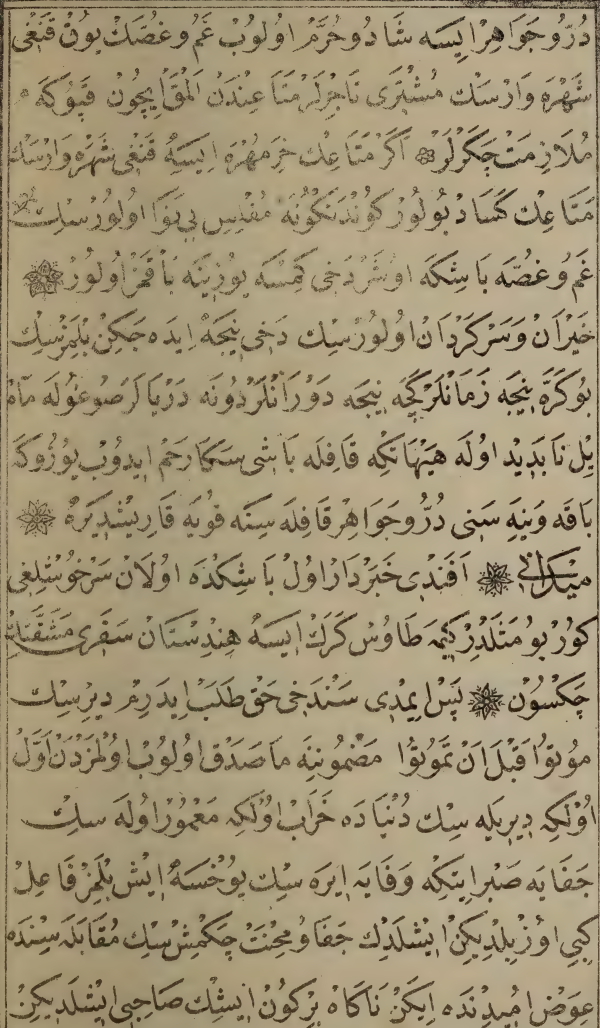 دُرّ و جَوَاهِرْ ايسه شَاد و خُرَّمْ اولوُبْ غَم و غُصَّهْ سِكْ يوقْ قَنْغِى
شَهْرَه وَارْسَكْ مُشْتَرِى تَاجِرْلَرْ مَتَاعِنْدَنْ اَلْمَقْ اِيچُونْ قَپُوكَه
مُلَازِمَتْ چَكَرْلَرْ اَكَرْ مَتَاعِكْ خَرْمُهْرَه اِيسَه قَنْغِى شَهْرَه وَارْسَكْ
مَتَاعِكْ كَسَادْ بُولُورْ كُوندَنْكُونَه مُفْلِسِ بِى نَوَا اولُورْسِكْ
غَم و غُصَّه بَاشِكَه اوشَرْ دَخِى كِمْسَه يُوزِيِنَه بَاقْمَزْ اُولُورْ
حَيْرَانْ وَسَرْكَرْدَانْ اولُورْسِكْ دَخِى نِيجَه اِيدَه جَكِنْ بِلْمَزْسِكْ
بُوكَرَّه نِيجَه زَمَانْلَرْ كَچَه نِيجَه دَوْرَانْلَرْ دُونَه دَرْيَالَرْ صُوغُولَه مَاهْ
يِلْ نَابَدِيد اولَه هَيْهَاتكِه قَافِلَه بَاشِى سَكَا رَحْم اِيدُوبْ يُوزُوكَه
بَاقَه وَيِنَه سَنِى دُرُّ و جَوَاهِرْ قَافِلَه سِنَه قُويَه قَارِيشْدِيرَه
ميدانى اَفَنْدِى خَبَرْدَارْ اُولْ بَاشِكْدَه اولَانْ سَرْخُوشْلِغِى
كُورْ بُو مَثَلْدِرْ كِيمَه طَاوُسْ كَرَكْ اِيسَه هِنْدِسْتَانْ سَفَرِى مَشَقَّتِنْ
چَكْسُونْ پَسْ اِيمْدِى سَنْدَخِى حَقْ طَلَبْ اِيدَرِمْ دِيرْسِكْ
مُوتُوا قَبْلَ اَنْ تَمُوتُوا مَضْمُونِنَه مَاصَدَقْ اولُوبْ اُولْمَزْدَنْ اَوَّلْ
اُولْكِه دِيرِيلَه سِكْ دُنْيَادَه خَرَابْ اُولْكِه مَعْمُورْ اُولَه سِكْ
جَفَايَه صَبْر اِيتْكِه وَفَايَه اِيرَه سِكْ يُوخْسَه اِيشْ بِلْمَزْ فَاعِلْ
كِبِى اوزْ بِلْدِيكِنْ اِيشْلَدِكْ جَفَا وُ مِحْنَتْ چَكْمِشْسِكْ مُقَابَلَه سِنْدَه
عِوَضْ اُمِيدِنْدَه اِيكَنْ نَاكَاه بِرْكُونْ اِيشِكْ صَاحِبِى اِيشْلَدِيكِنْ